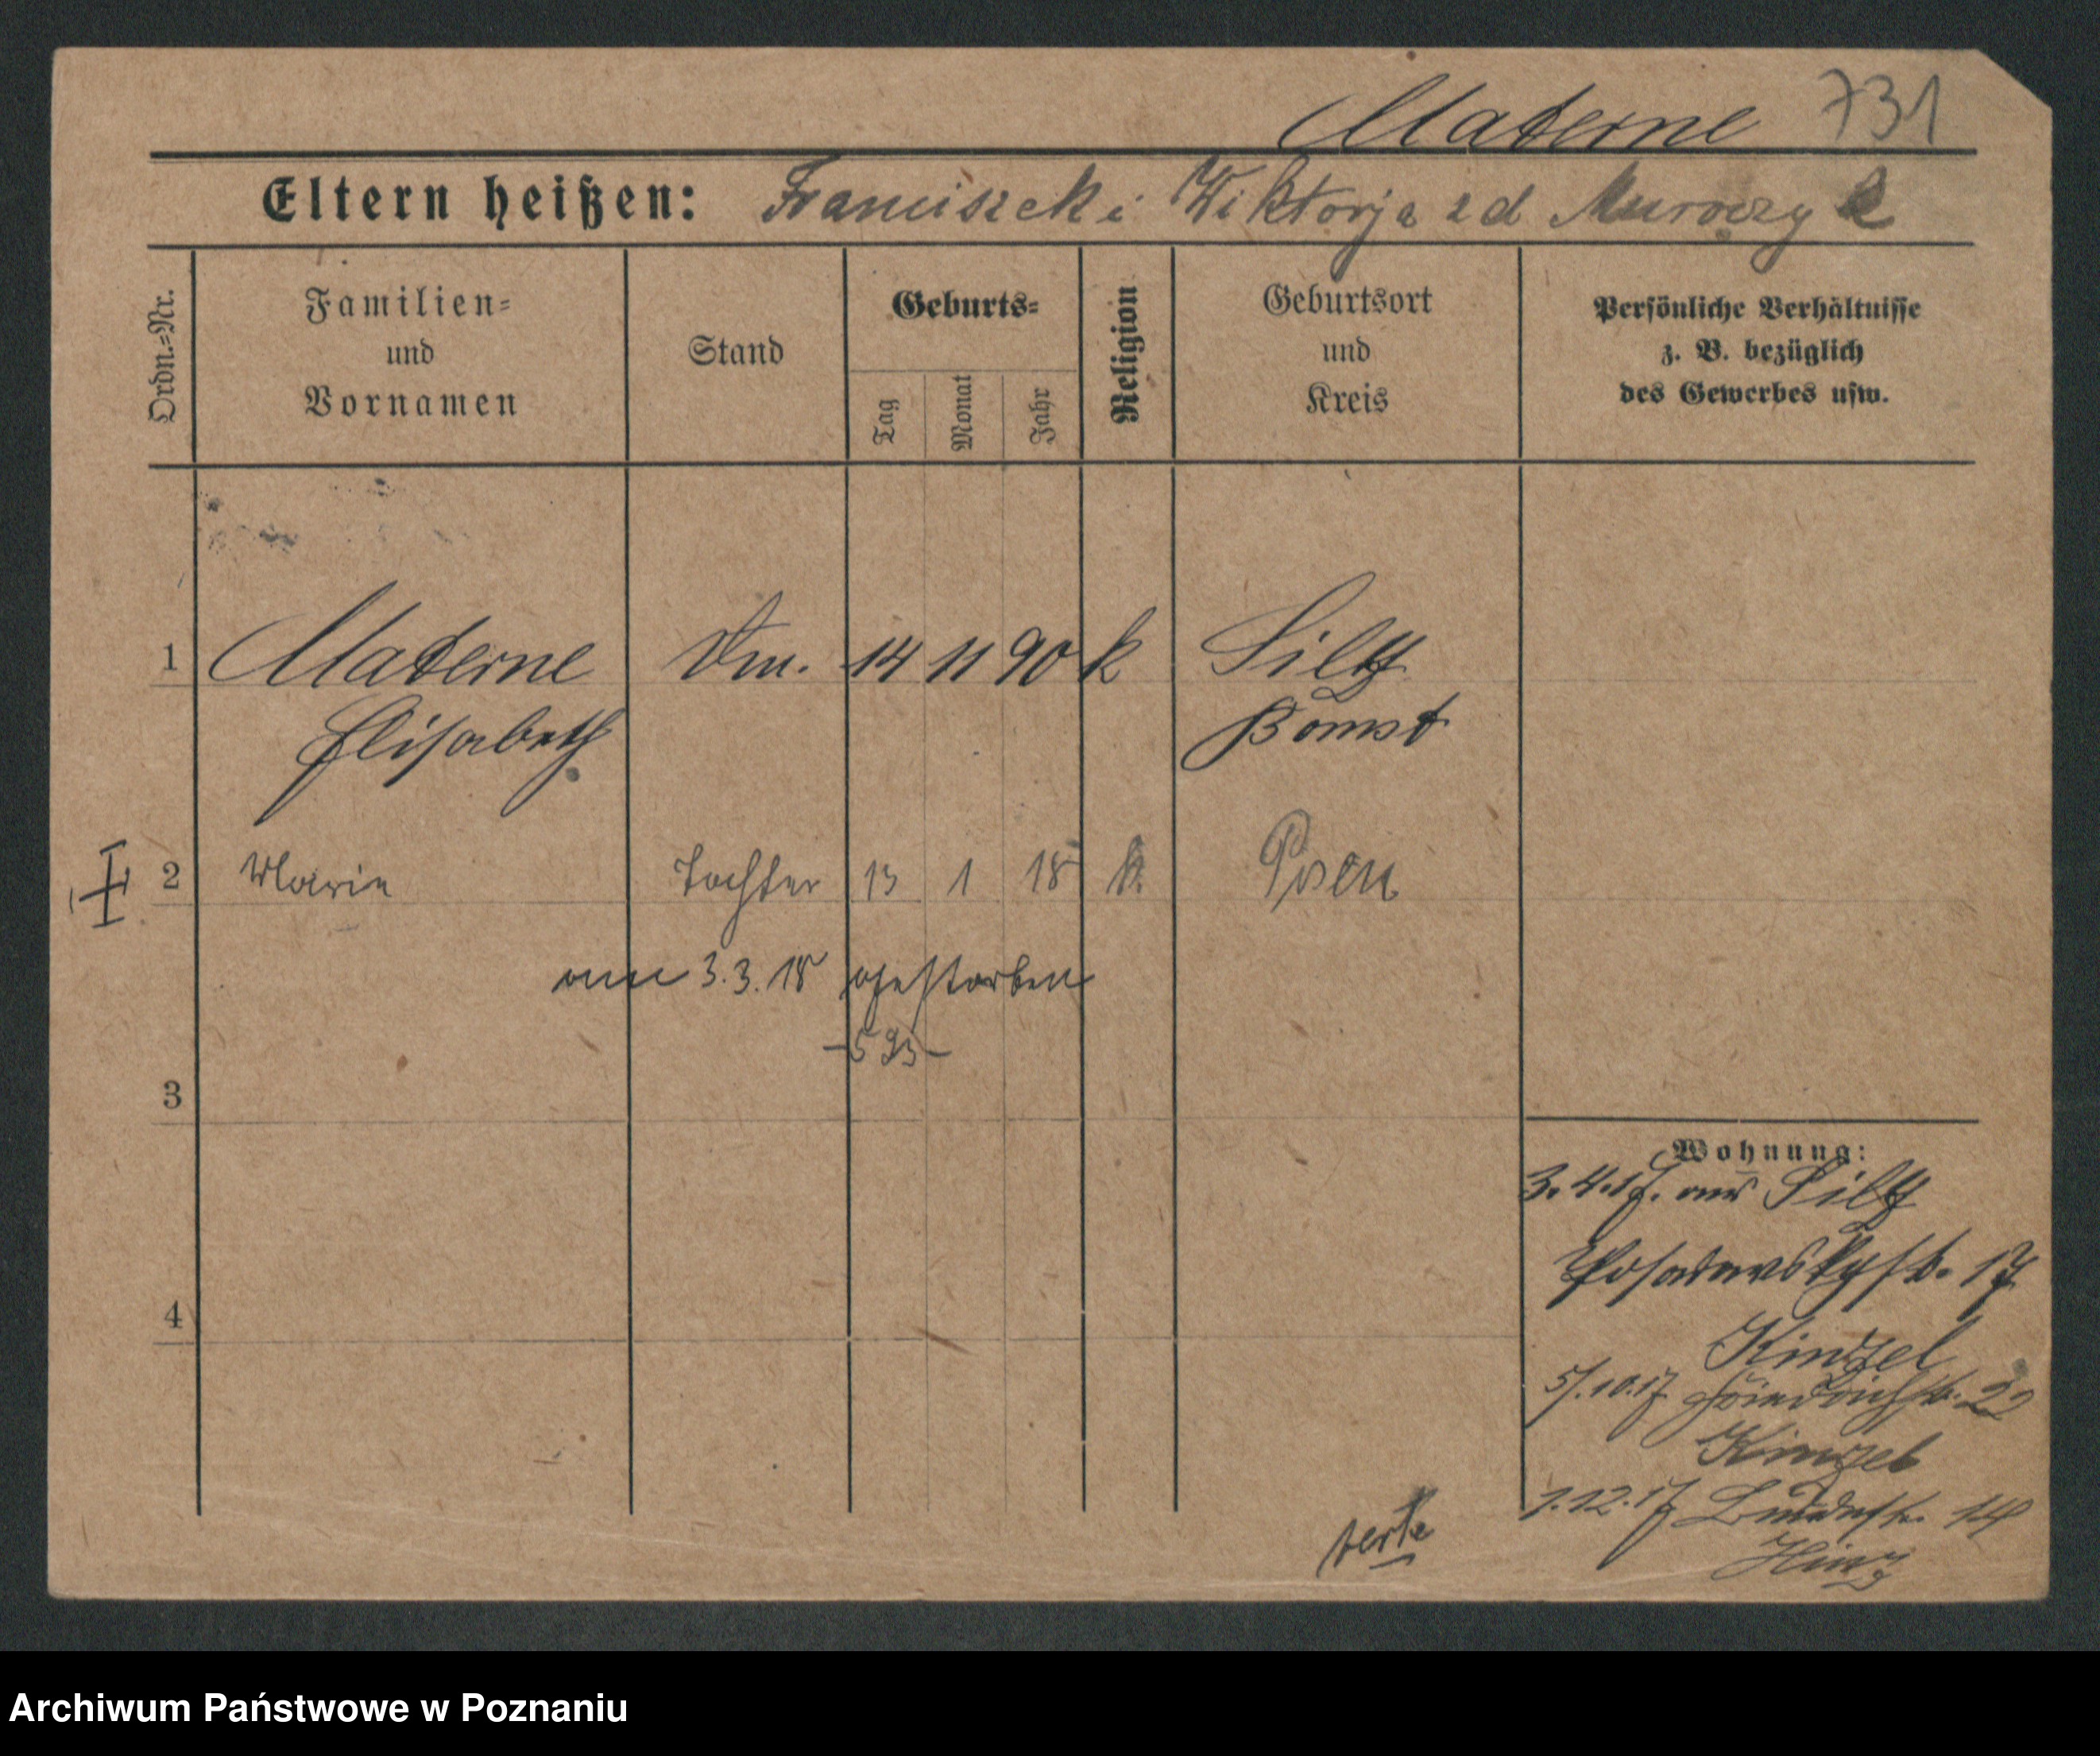 Materne 731
Eltern heißen: Franciszek i Wiktorja zd Murawzyk
Ordn.-Nr.
Familien- und Vornamen
Stand
Geburts-
Tag
Monat
Jahr
Religion
Geburtsort und Kreis
Persönliche Verhältnisse z. B. bezüglich des Gewerbes usw.
1 Materne Dm. 14 11 90 k Silz
Elisabeth Bomst
2 Marie Tochter 13 1 18 k. Posen
am 3.3.18 gestorben
-593-
3
4
Wohnung:
3.4.17. aus Silz
Posadowskystr. 17
Kinzel
5/.10.17 Friedrichstr. 22
Kinzel
1.12.17 14
Hinz
Archiwum Państwowe w Poznaniu